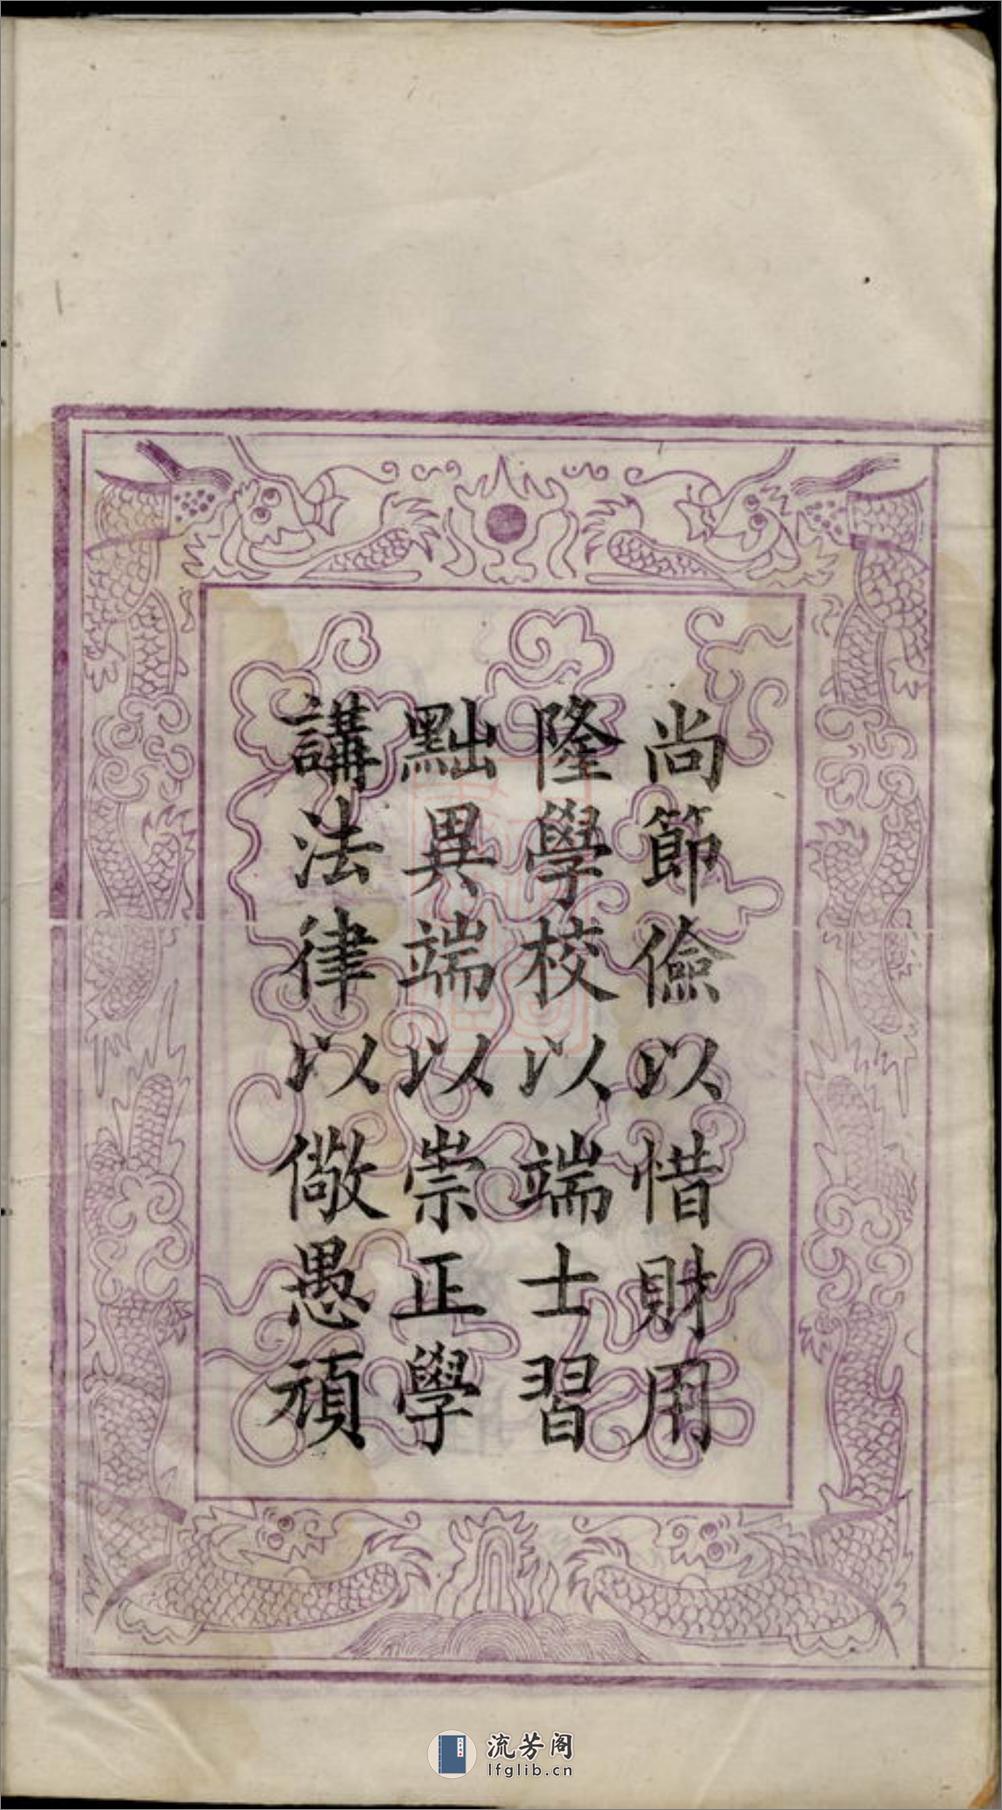 尚節儉以惜財用
隆學校以端士習
黜異端以崇正學
講法律以儆愚頑
流芳阁
lfglib.cn